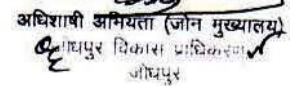 अधिशाषी अभियंता (जोन मुख्यालय)
जोधपुर विकास प्राधिकरण
जोधपुर